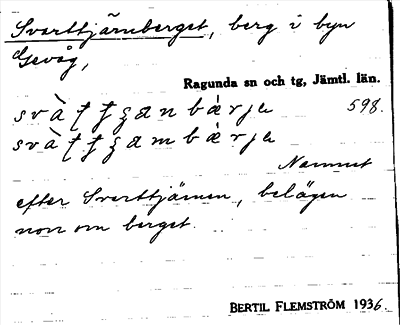 Svarttjärnberget, berg i byn
Gevåg,
Ragunda sn och tg, Jämtl. län.
598.
Namnet
efter Svarttjärnen, belägen
norr om berget.
BERTIL FLEMSTRÖM 1936.